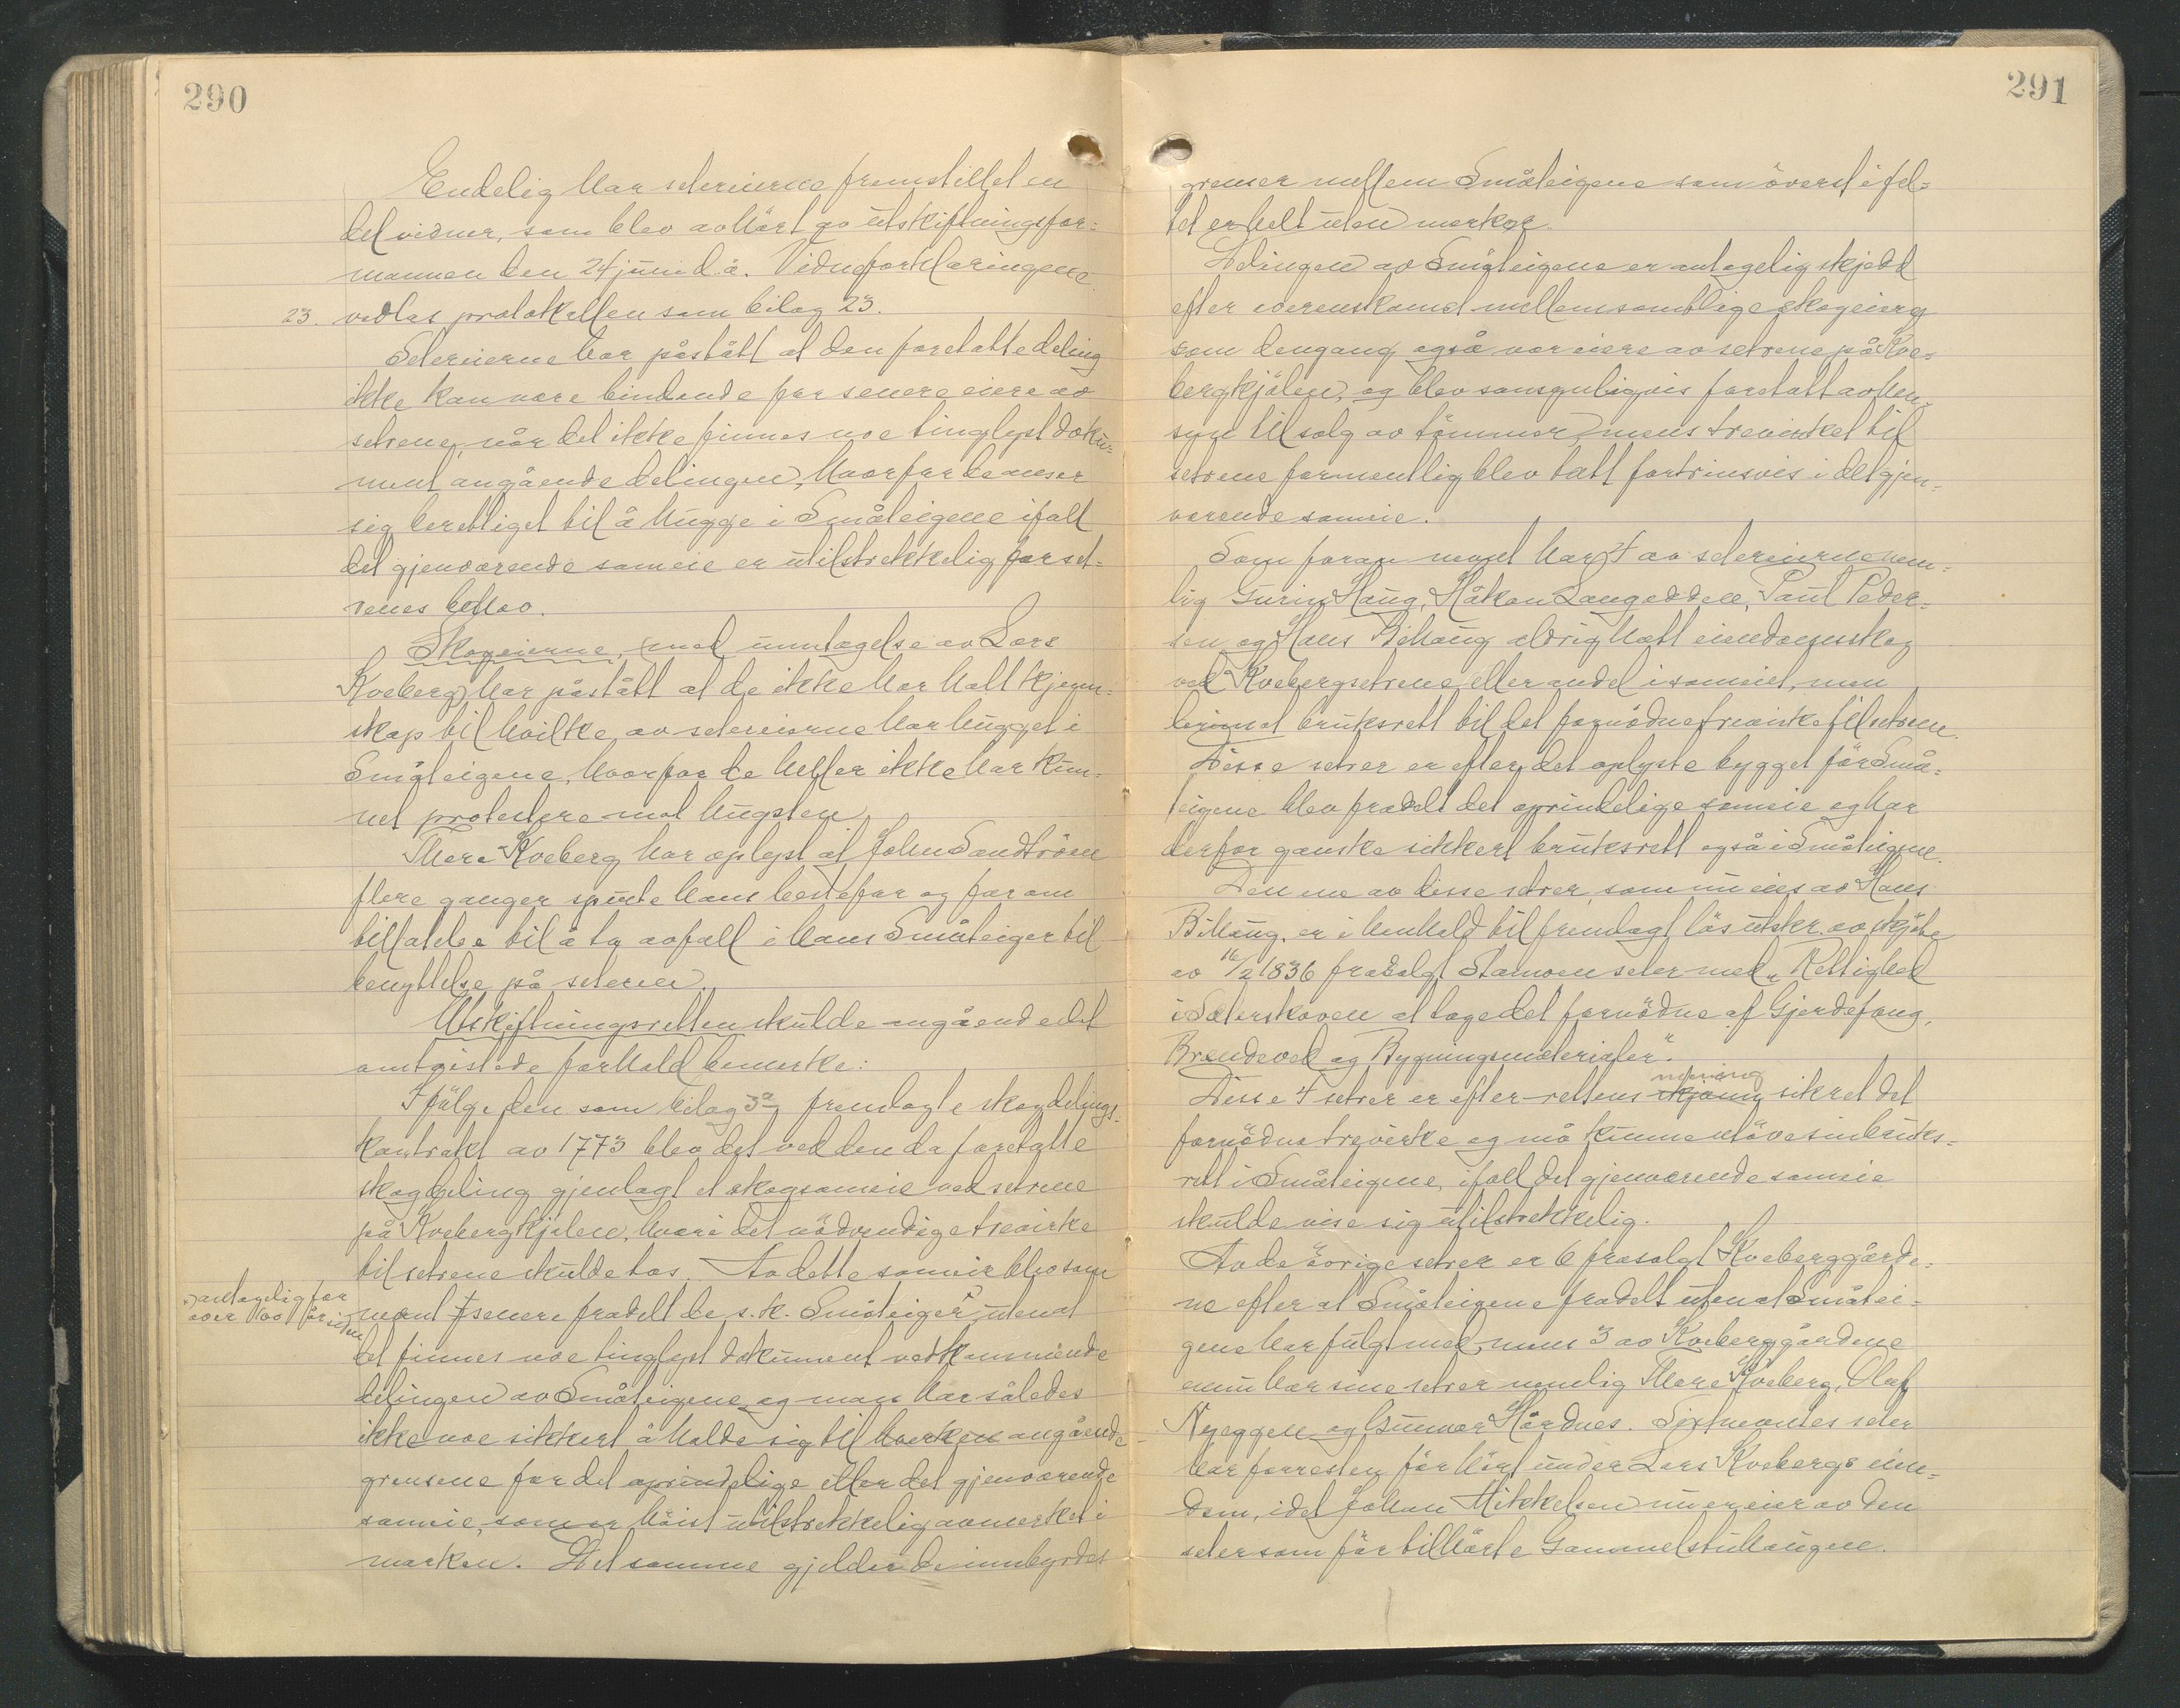 290
Endelig har setereierne fremstillet en
del vidner, som blev avhört av utskiftningsfor=
mannen den 24 juni d.å. Vidneforklaringene
23. vedlas protokollen som bilag 23.
Setereierne har påstått at den foretatte deling
ikke kan være bindende for senere eiere av
setrene, når det ikke finnes noe tinglyst doku=
ment angående delingen, hvorfor de anser
sig berettiget til å hugge i Småteigene ifall
det gjenværende sameie er utilstrekkelig for set=
renes behov.
Skogeierne, med unntagelse av Lars
Kveberg, har påstått at de ikke har hatt kjenn=
skap til hvilke av setereierne har hugget i
Småteigene, hvorfor de heller ikke har kun=
net protestere mot hugsten.
Thore Kveberg har oplyst at Johan Sandtröen
flere ganger spurte hans bestefar og far om
tillatelse til å ta avfall i hans Småteiger til
benyttelse på seteren.
Utskiftningsretten skulde angående det
omtvistede forhold bemerke:
Ifölge den som bilag 3a fremlagte skogdelings=
kontrakt av 1773 blev det ved den da foretatte
skogdeling gjenlagt et skogsameie ved setrene
på Kvebergkjölen, hvori det nödvendige trevirke
til setrene skulde tas. Av dette sameie blev som
x) antagelig for
over 100 år siden
nevnt x senere fradelt de s.k. Småteiger, uten at
det finnes noe tinglyst dokument vedkommende
delingen av Småteigene, og man har således
ikke noe sikkert å holde sig til hverken angående
grensene for det oprindelige eller det gjenværende
sameie, som er höist utilstrekkelig avmerket i
marken. Det samme gjelder de innbyrdes
291
grenser mellem Småteigene som överst i fel=
tet er helt uten merker.
Delingen av Småteigene er antagelig skjedd
efter overenskomst mellem samtlige skogeiere
som dengang også var eiere av setrene på Kve=
bergkjölen, og blev sansynligvis foretatt av hen=
syn til salg av tömmer, mens trevirket til
setrene formentlig blev tatt fortrinsvis i det gjen=
værende sameie.
Som foran nevnt har 4 av setereierne nem=
lig Gurin Haug, Håkon Langodden, Paul Peder=
sen og Hans Bihaug aldrig hatt eiendomsskog
ved Kvebergsetrene eller andel i sameiet, men
derimot bruksrett til det fornödne trevirke til setrene.
Disse setrer er efter det oplyste bygget för Små=
teigene blev fradelt det oprindelige sameie og har
derfor ganske sikkert bruksrett også i Småteigene.
Den ene av disse setrer, som nu eies av Hans
Bihaug, er i henhold til fremlagt lös utskr. av skjöte
av 16/2 1836 frasolgt Stamoen seter med „Rettighed
i Sæterskoven at tage det fornödne af Gjerdefang,
Brændeved og Bygningsmaterialer".
Disse 4 setrer er efter rettens skjönn mening sikret det
fornödne trevirke og må kunne utöve sin bruks=
rett i Småteigene, ifall det gjenværende sameie
skulde vise sig utilstrekkelig.
Av de övrige setrer er 6 frasolgt Kveberggårde=
ne efter at Småteigene fradelt uten at Småtei=
gene har fulgt med, mens 3 av Kveberggårdene
ennu har sine setrer nemlig Thore Kveberg, Olaf
Nyeggen og Gunnar Hårdnes. Sistnevntes seter
har forresten för hört under Lars Kvebergs eien=
dom, idet Johan Mikkelsen nu er eier av den
seter som för tilhörte Gammelstuhaugene.